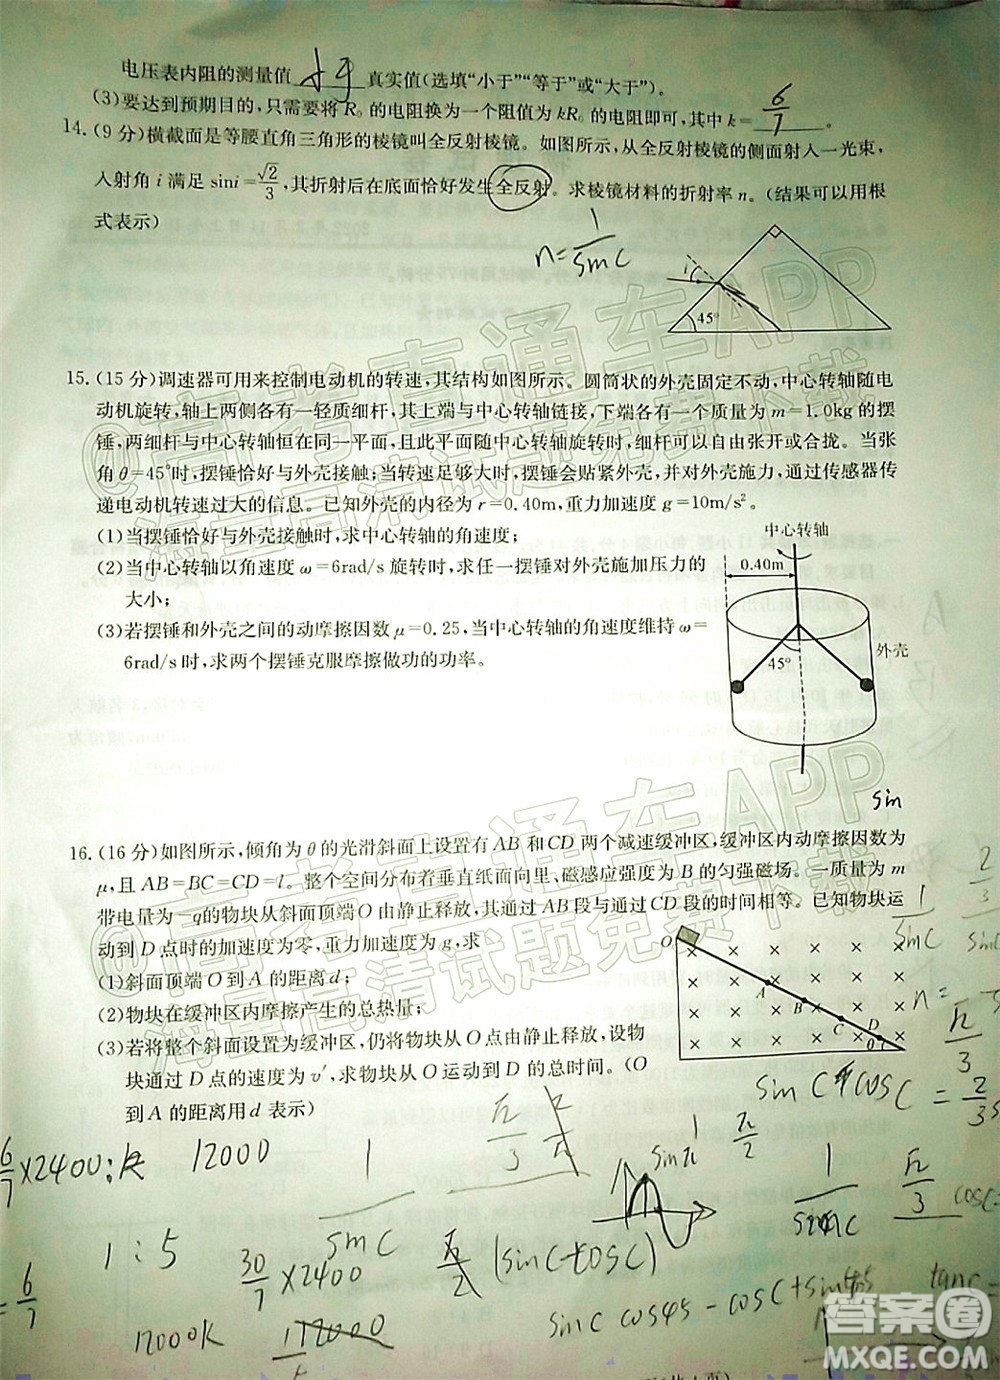 电压表内阻的测量值 大于 真实值(选填“小于”“等于”或“大于”)。
(3)要达到预期目的,只需要将 R₀ 的电阻换为一个阻值为 kR₀ 的电阻即可,其中 k= 6/7 。
14.(9 分)横截面是等腰直角三角形的棱镜叫全反射棱镜。如图所示,从全反射棱镜的侧面射入一光束,
入射角 i 满足 sini=√2/3,其折射后在底面恰好发生全反射。求棱镜材料的折射率 n。(结果可以用根
式表示)
n=1/sinC
i
45°
15.(15 分)调速器可用来控制电动机的转速,其结构如图所示。圆筒状的外壳固定不动,中心转轴随电
动机旋转,轴上两侧各有一轻质细杆,其上端与中心转轴链接,下端各有一个质量为 m=1.0kg 的摆
锤,两细杆与中心转轴恒在同一平面,且此平面随中心转轴旋转时,细杆可以自由张开或合拢。当张
角 θ=45°时,摆锤恰好与外壳接触;当转速足够大时,摆锤会贴紧外壳,并对外壳施力,通过传感器传
递电动机转速过大的信息。已知外壳的内径为 r=0.40m,重力加速度 g=10m/s²。
(1)当摆锤恰好与外壳接触时,求中心转轴的角速度;
(2)当中心转轴以角速度 ω=6rad/s 旋转时,求任一摆锤对外壳施加压力的
大小;
(3)若摆锤和外壳之间的动摩擦因数 μ=0.25,当中心转轴的角速度维持 ω=
6rad/s 时,求两个摆锤克服摩擦做功的功率。
中心转轴
0.40m
外壳
45°
sin
16.(16 分)如图所示,倾角为 θ 的光滑斜面上设置有 AB 和 CD 两个减速缓冲区,缓冲区内动摩擦因数为
μ,且 AB=BC=CD=l。整个空间分布着垂直纸面向里、磁感应强度为 B 的匀强磁场。一质量为 m
带电量为 −q 的物块从斜面顶端 O 由静止释放,其通过 AB 段与通过 CD 段的时间相等。已知物块运
动到 D 点时的加速度为零,重力加速度为 g,求
(1)斜面顶端 O 到 A 的距离 d;
(2)物块在缓冲区内摩擦产生的总热量;
(3)若将整个斜面设置为缓冲区,仍将物块从 O 点由静止释放,设物
块通过 D 点的速度为 v′,求物块从 O 运动到 D 的总时间。(O
到 A 的距离用 d 表示)
O
A
B
C
D
θ
1/sinC
2/3
n=
√2/3
sinC cosC = 2/3
6/7 ×2400:k
12000
1/sinC
√2/3
1/sinC
√2/3
1:5
30/7 ×2400
√2/2 (sinC-cosC)
=6/7
12000k
sinC cos45 - cosC + sin45
tanC=
高考直通车APP
海量高清试题免费下载
答案圈
MXQE.COM